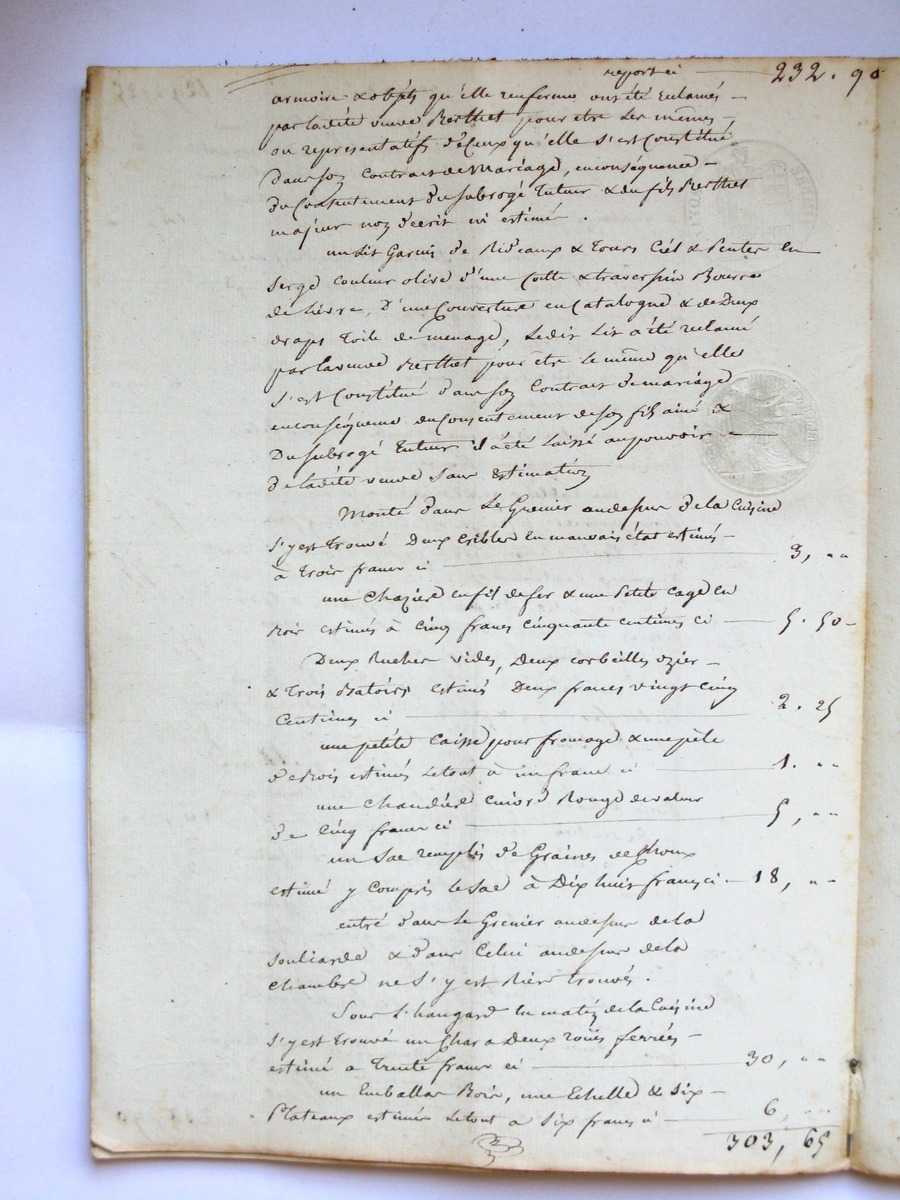 report ci 232. 90
armoire & objets qu'elle renferme ont été réclamés
par ladite veuve Berthet pour etre les mêmes,
ou representatifs d'Ceux qu'elle s'est Constitué
Dans son Contrat de Mariage, en conséquence
Du Consentement du subrogé Tuteur & du fils Berthet
majeur non décrit ni estimé.
un Lit Garni de Rideaux & Tours Ciél & Penter en
serge Couleur olive d'une Coitte & traversin Bourre
de Lievre, D'une Couverture en Catalogne & de Deux
draps Toile de menage, Ledit Lit a été reclamé
par la veuve Berthet pour être le même qu'elle
s'est Constitué dans son Contrat de mariage
en conséquence du Consentement de son fils ainé &
Du subrogé Tuteur il a été Laissé au pouvoir
de ladite veuve sans Estimation
Monté dans Le Grenier au dessus de la Cuisine
s'y est trouvé Deux Cribles en mauvais état estimés
à trois francs ci 3, ""
une Chazière en fil de fer & une Petite cage en
Bois estimés à Cinq francs cinquante centimes ci 5. 50
Deux Ruches vides, Deux corbeilles ozier
& Trois Batoirs estimés Deux francs vingt cinq
Centimes ci 2. 25
une petite Caisse pour fromage & une pèle
de Bois estimés Letout à un franc ci 1. ""
une Chaudière Cuivre Rouge de valeur
de Cinq francs ci 5, ""
un Sac remplis de Graines de Choux
estimé y Compris le Sac à Dix huit francs ci 18, ""
entré dans Le Grenier au dessus de la
souliarde & dans Celui au dessus de la
Chambre ne s'y est Rien trouvés.
Sous L'hangard du matin de la Cuisine
s'y est trouvé un Char a Deux roües ferrées
estimé a Trente francs ci 30, ""
un Emballas Bois, une Echelle & six
Plateaux estimés Letout a six francs ci 6, ""
303, 65